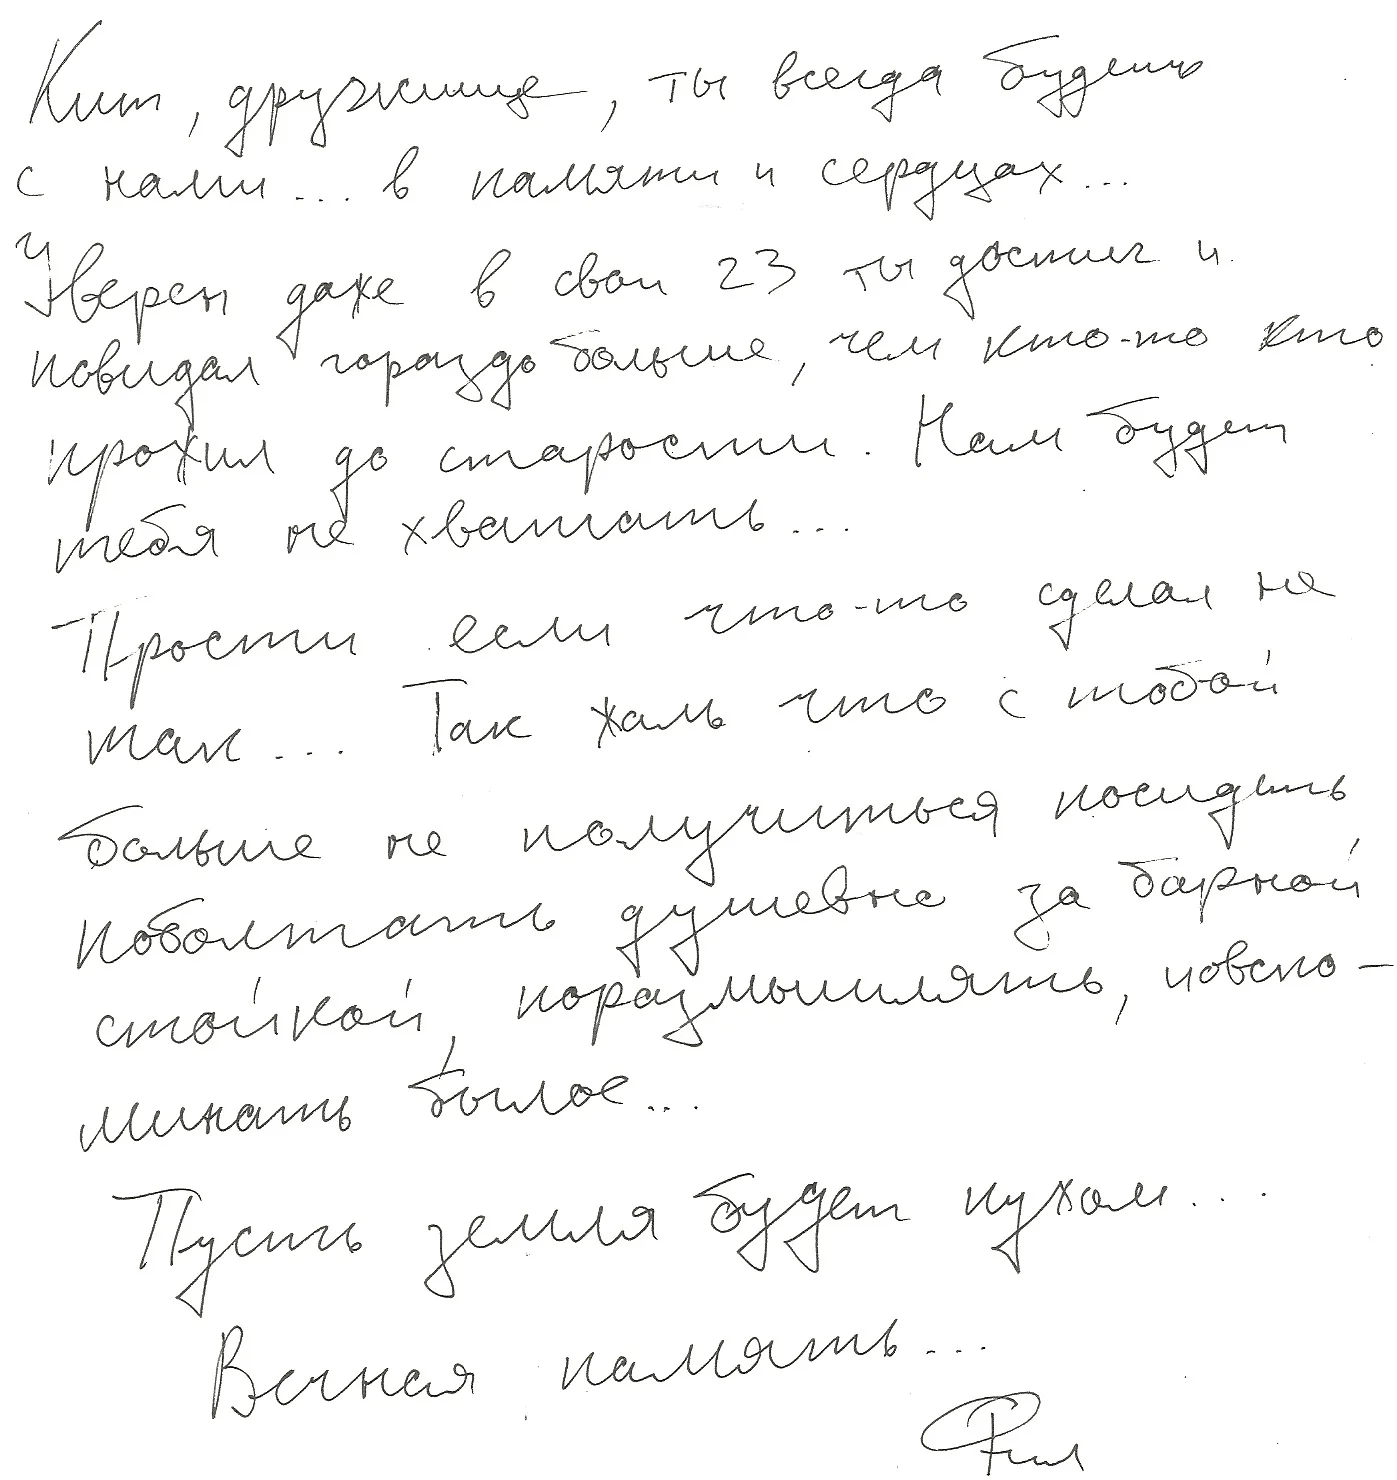 Кит, дружище, ты всегда будешь
с нами... в памяти и сердцах...
Уверен даже в свои 23 ты достиг и
повидал гораздо больше, чем кто-то кто
прожил до старости. Нам будет
тебя не хватать...
Прости если что-то сделал не
так... Так жаль что с тобой
больше не получиться посидеть
поболтать душевно за барной
стойкой, поразмышлять, повспо-
минать былое...
Пусть земля будет пухом...
Вечная память...
Фил